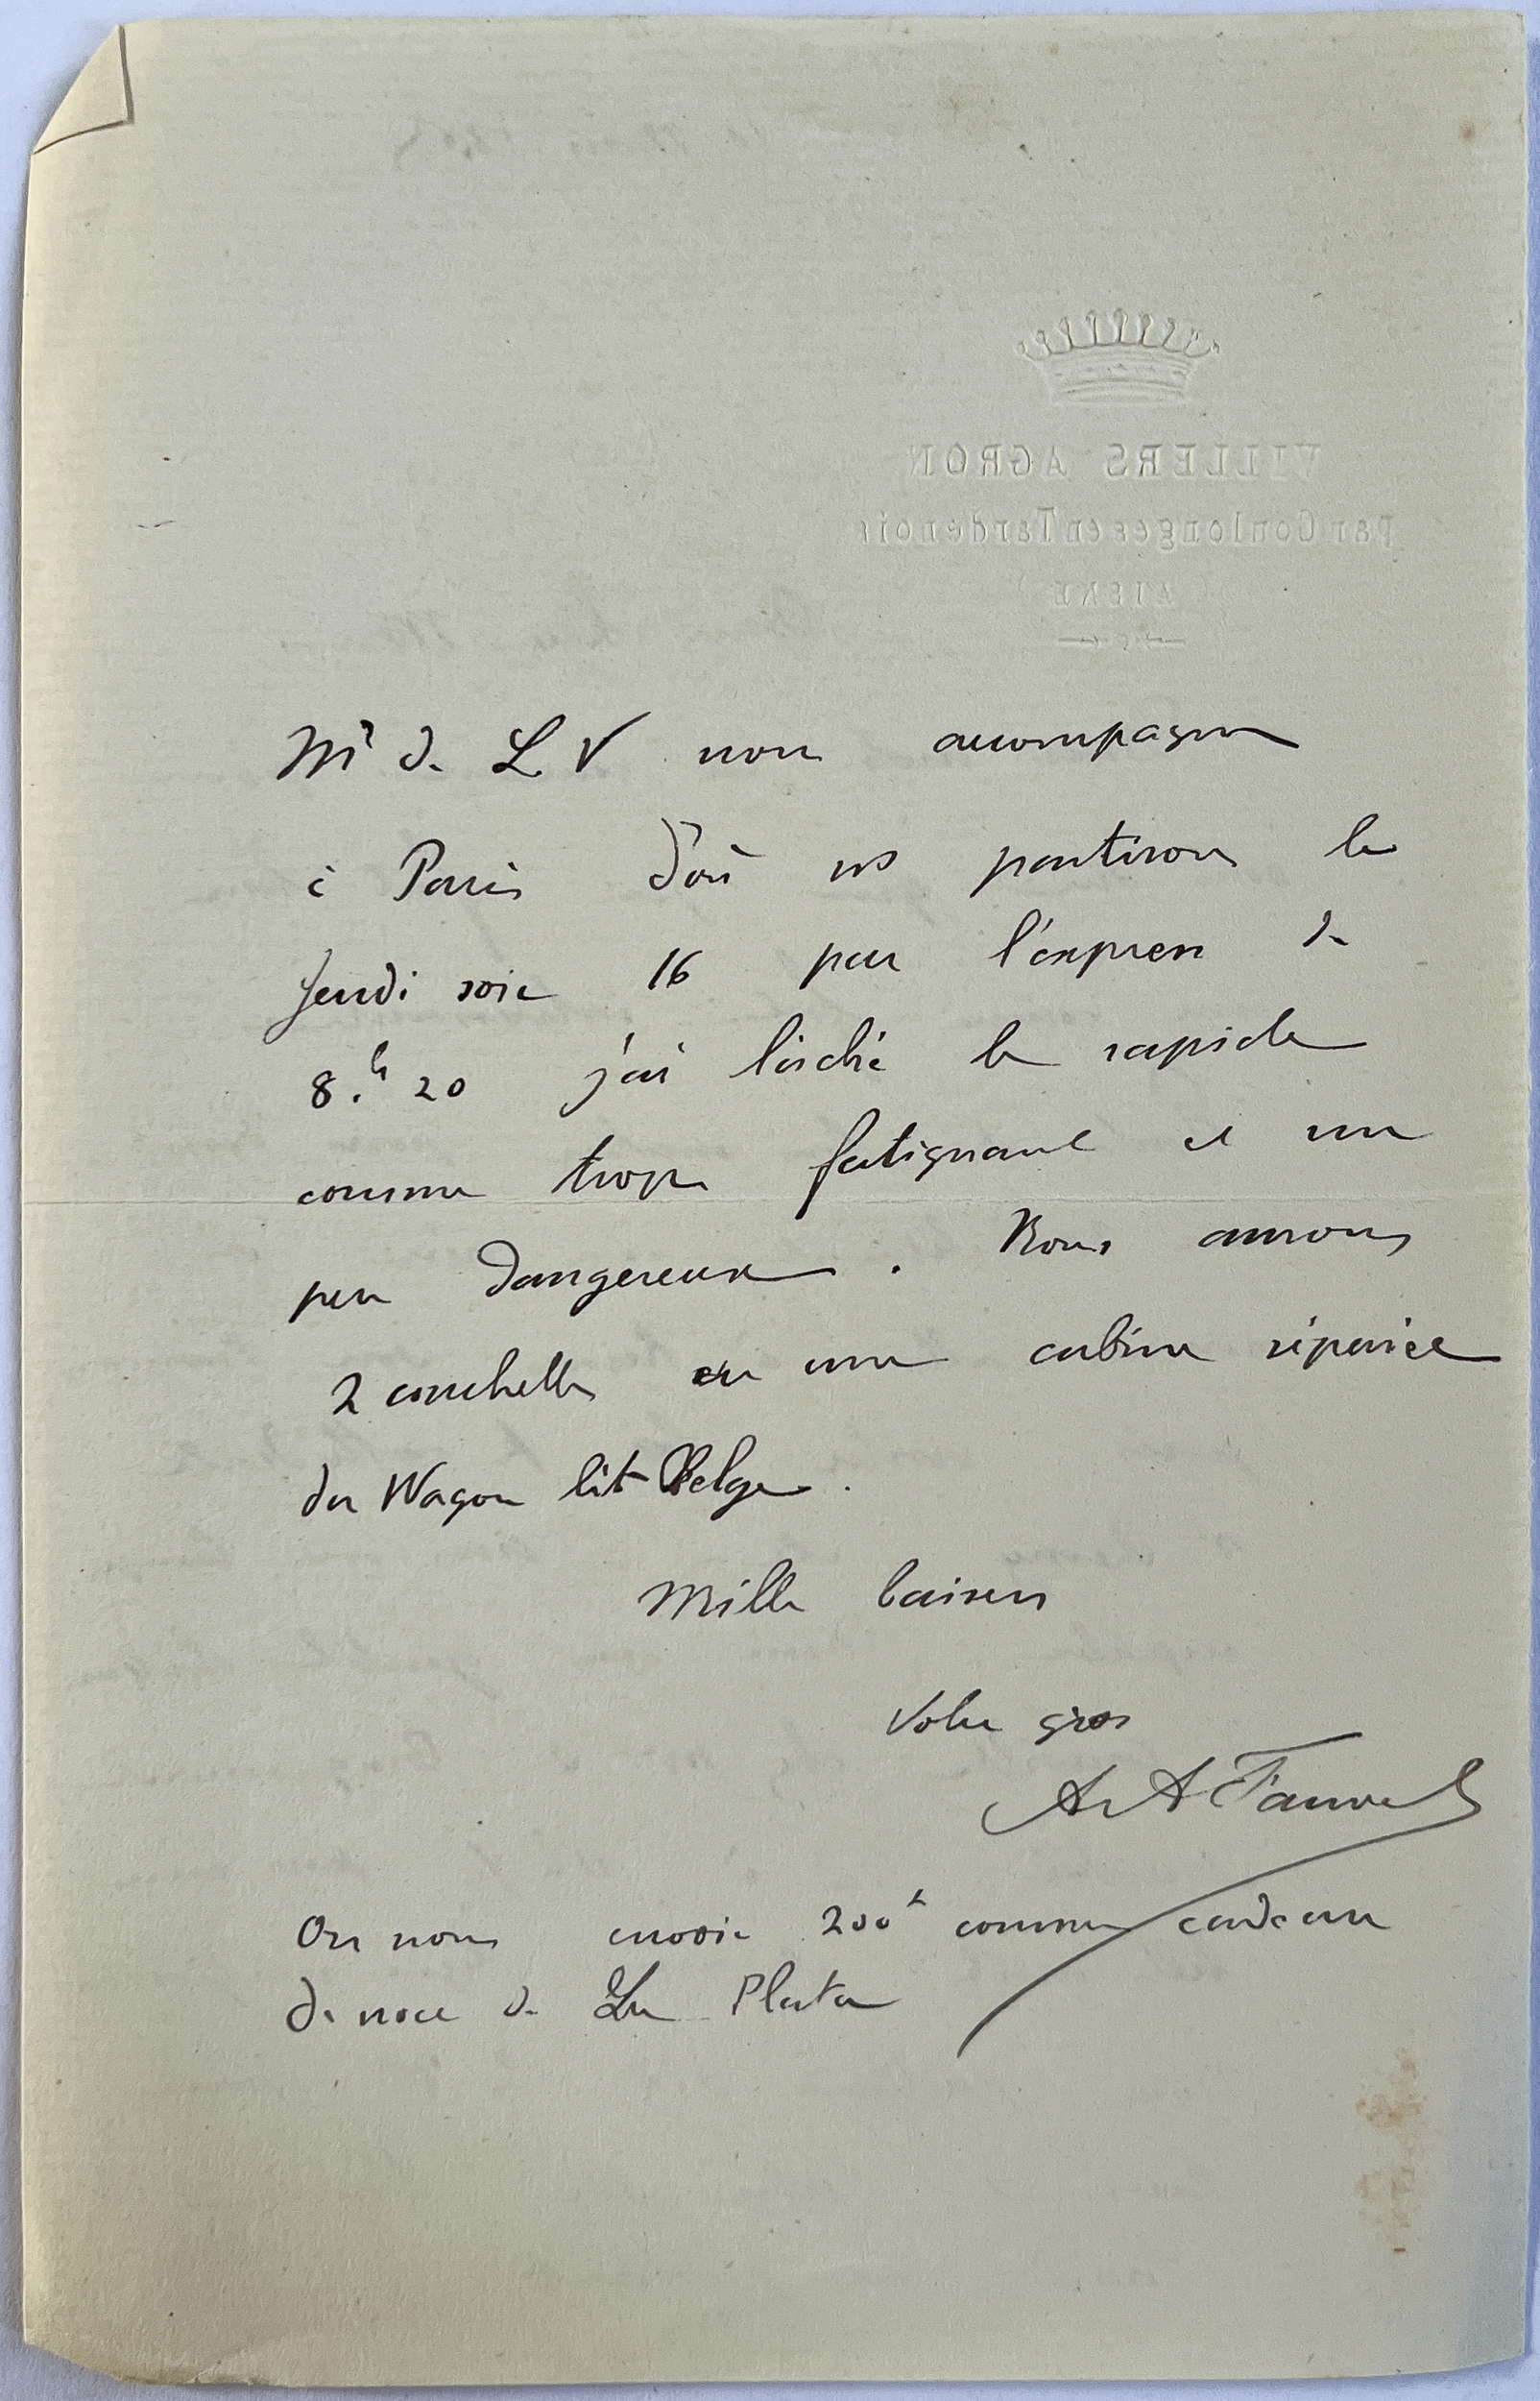 VILLERS AGRON
par Coulonges en Tardenois
AISNE
Mr de L V nous accompagne
à Paris d'où ns partirons le
Jeudi soir 16 par l'express de
8.h 20 j'ai lâché le rapide
comme trop fatignant et un
peu dangereux. Nous aurons
2 couchettes en une cabine séparée
du Wagon lit Belge.
Mille baisers
Votre gros
A A Fauvel
On nous envoie 200 comme cadeau
de noce de La Plata